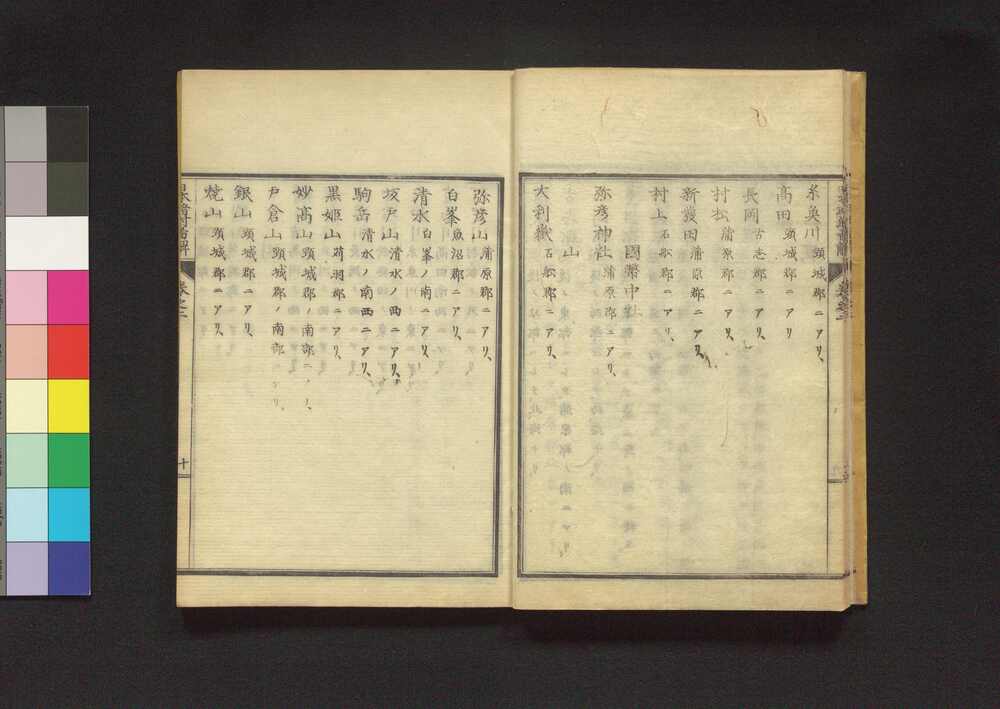 糸奐川 頸城郡ニアリ、
高田 頸城郡ニアリ
長岡 古志郡ニアリ、
村松 蒲原郡ニアリ、
新發田 蒲原郡ニアリ、
村上 石舩郡ニアリ、
國幣中社
弥彦神社 蒲原郡ニアリ、
山
大利嶽 石舩郡ニアリ、
弥彦山 蒲原郡ニアリ、
白峯 魚沼郡ニアリ、
清水 白峯ノ南ニアリ、
坂戸山 清水ノ西ニアリ、
駒岳 清水ノ南西ニアリ、
黒姫山 苅羽郡ニアリ、
妙高山 頸城郡ノ南部ニアリ、
戸倉山 頸城郡ノ南部ニアリ、
銀山 頸城郡ニアリ、
焼山 頸城郡ニアリ、
卷之二
十